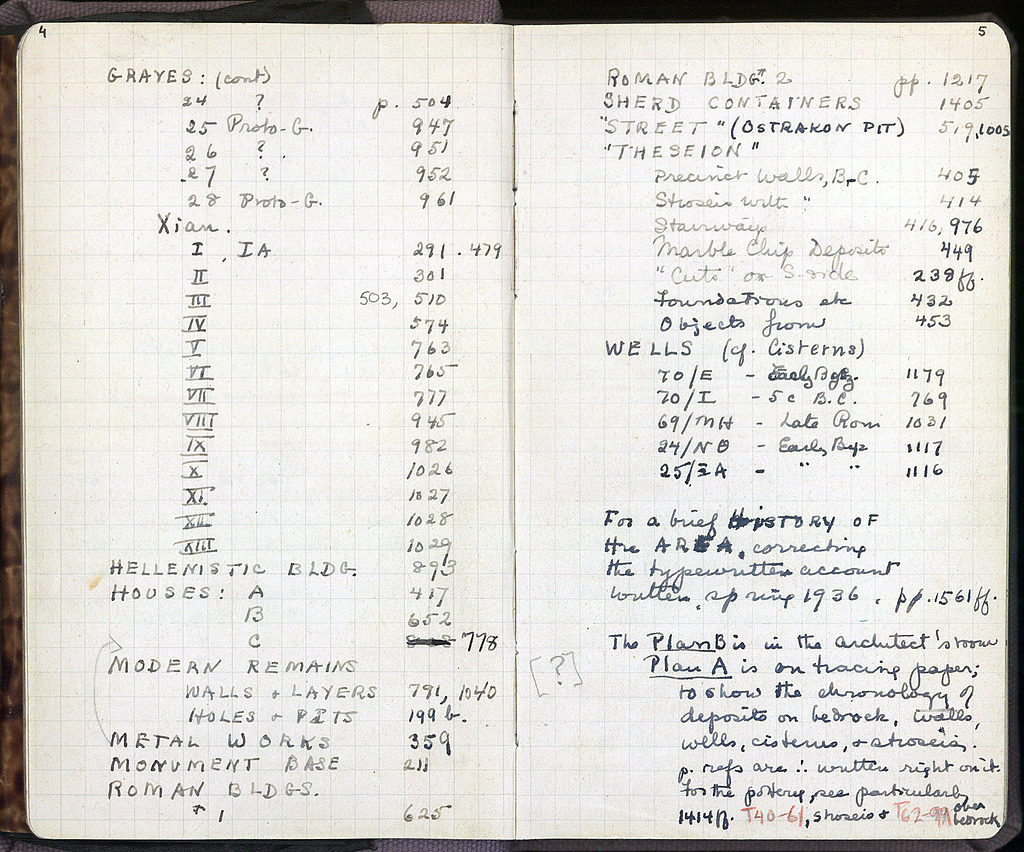 4
GRAVES: (cont)
24 ? p. 504
25 Proto-G. 947
26 ? 951
27 ? 952
28 Proto-G. 961
Xian.
I, IA 291. 479
II 301
III 503, 510
IV 574
V 763
VI 765
VII 777
VIII 945
IX 982
X 1026
XI 1027
XII 1028
XIII 1029
HELLENISTIC BLDG. 893
HOUSES: A 417
B 652
C 778
MODERN REMAINS
WALLS & LAYERS 791, 1040
HOLES & PITS 199 b.
METAL WORKS 359
MONUMENT BASE 211
ROMAN BLDGS.
1 625
5
ROMAN BLDG. 2 pp. 1217
SHERD CONTAINERS 1405
"STREET" (OSTRAKON PIT) 519, 1005
"THESEION"
Precinct Walls, B-C. 405
Stroseis with " 414
Stairways 416, 976
Marble Chip Deposits 449
"Cuts" on S-side 238ff.
Foundations etc 432
Objects from 453
WELLS (cf. Cisterns)
70/E - Early Byz. 1179
70/I - 5 c B.C. 769
69/MH - Late Rom 1031
24/NO - Early Byz 1117
25/ΞA - " " 1116
For a brief HISTORY OF
the AREA, correcting
the typewritten account
written, spring 1936, pp. 1561ff.
The Plan B is in the architect's room
[?] Plan A is on tracing paper;
to show the chronology of
deposits on bedrock, walls,
wells, cisterns, & stroseis.
p. refs are ∴ written right on it.
For the pottery, see particularly
1414ff. T40-61, stroseis & T62-99 over
bedrock